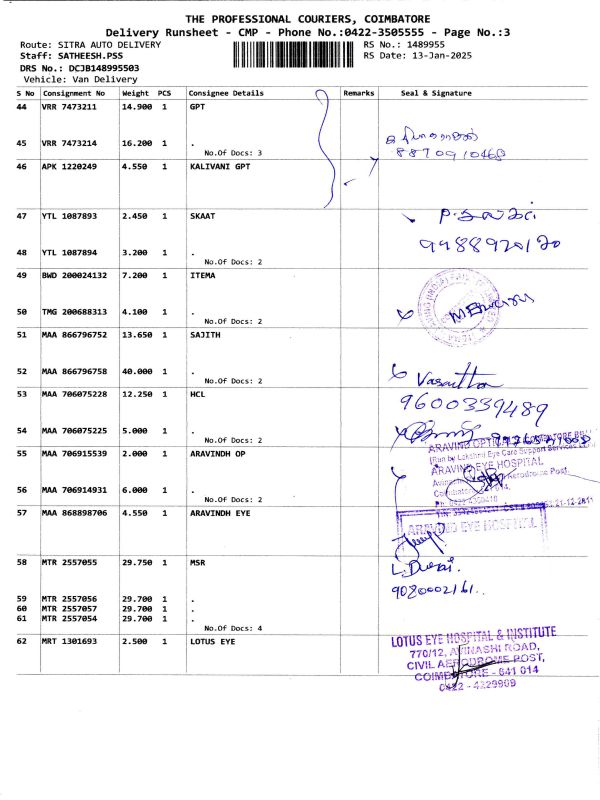 THE PROFESSIONAL COURIERS, COIMBATORE
Delivery Runsheet - CMP - Phone No.:0422-3505555 - Page No.:3
Route: SITRA AUTO DELIVERY
RS No.: 1489955
Staff: SATHEESH.PSS
RS Date: 13-Jan-2025
DRS No.: DCJB148995503
Vehicle: Van Delivery
S No Consignment No Weight PCS Consignee Details Remarks Seal & Signature
44 VRR 7473211 14.900 1 GPT
45 VRR 7473214 16.200 1 .
No.Of Docs: 3
46 APK 1220249 4.550 1 KALIVANI GPT
47 YTL 1087893 2.450 1 SKAAT
48 YTL 1087894 3.200 1 .
No.Of Docs: 2
49 BWD 200024132 7.200 1 ITEMA
50 TMG 200688313 4.100 1 .
No.Of Docs: 2
51 MAA 866796752 13.650 1 SAJITH
52 MAA 866796758 40.000 1 .
No.Of Docs: 2
Vasantha
53 MAA 706075228 12.250 1 HCL
9600339489
54 MAA 706075225 5.000 1 .
No.Of Docs: 2
55 MAA 706915539 2.000 1 ARAVINDH OP
(Run by Lakshmi Eye Care Support Services
ARAVIND EYE HOSPITAL
56 MAA 706914931 6.000 1 .
No.Of Docs: 2
57 MAA 868898706 4.550 1 ARAVINDH EYE
ARAVIND EYE HOSPITAL
58 MTR 2557055 29.750 1 MSR
L. Durai.
59 MTR 2557056 29.700 1 .
9080002161..
60 MTR 2557057 29.700 1 .
61 MTR 2557054 29.700 1 .
No.Of Docs: 4
62 MRT 1301693 2.500 1 LOTUS EYE
LOTUS EYE HOSPITAL & INSTITUTE
770/12, AVINASHI ROAD,
CIVIL AERODROME POST,
COIMBATORE - 641 014
0422 - 4229909